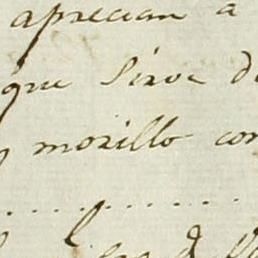 aprecian a
que sirve d
morillo con